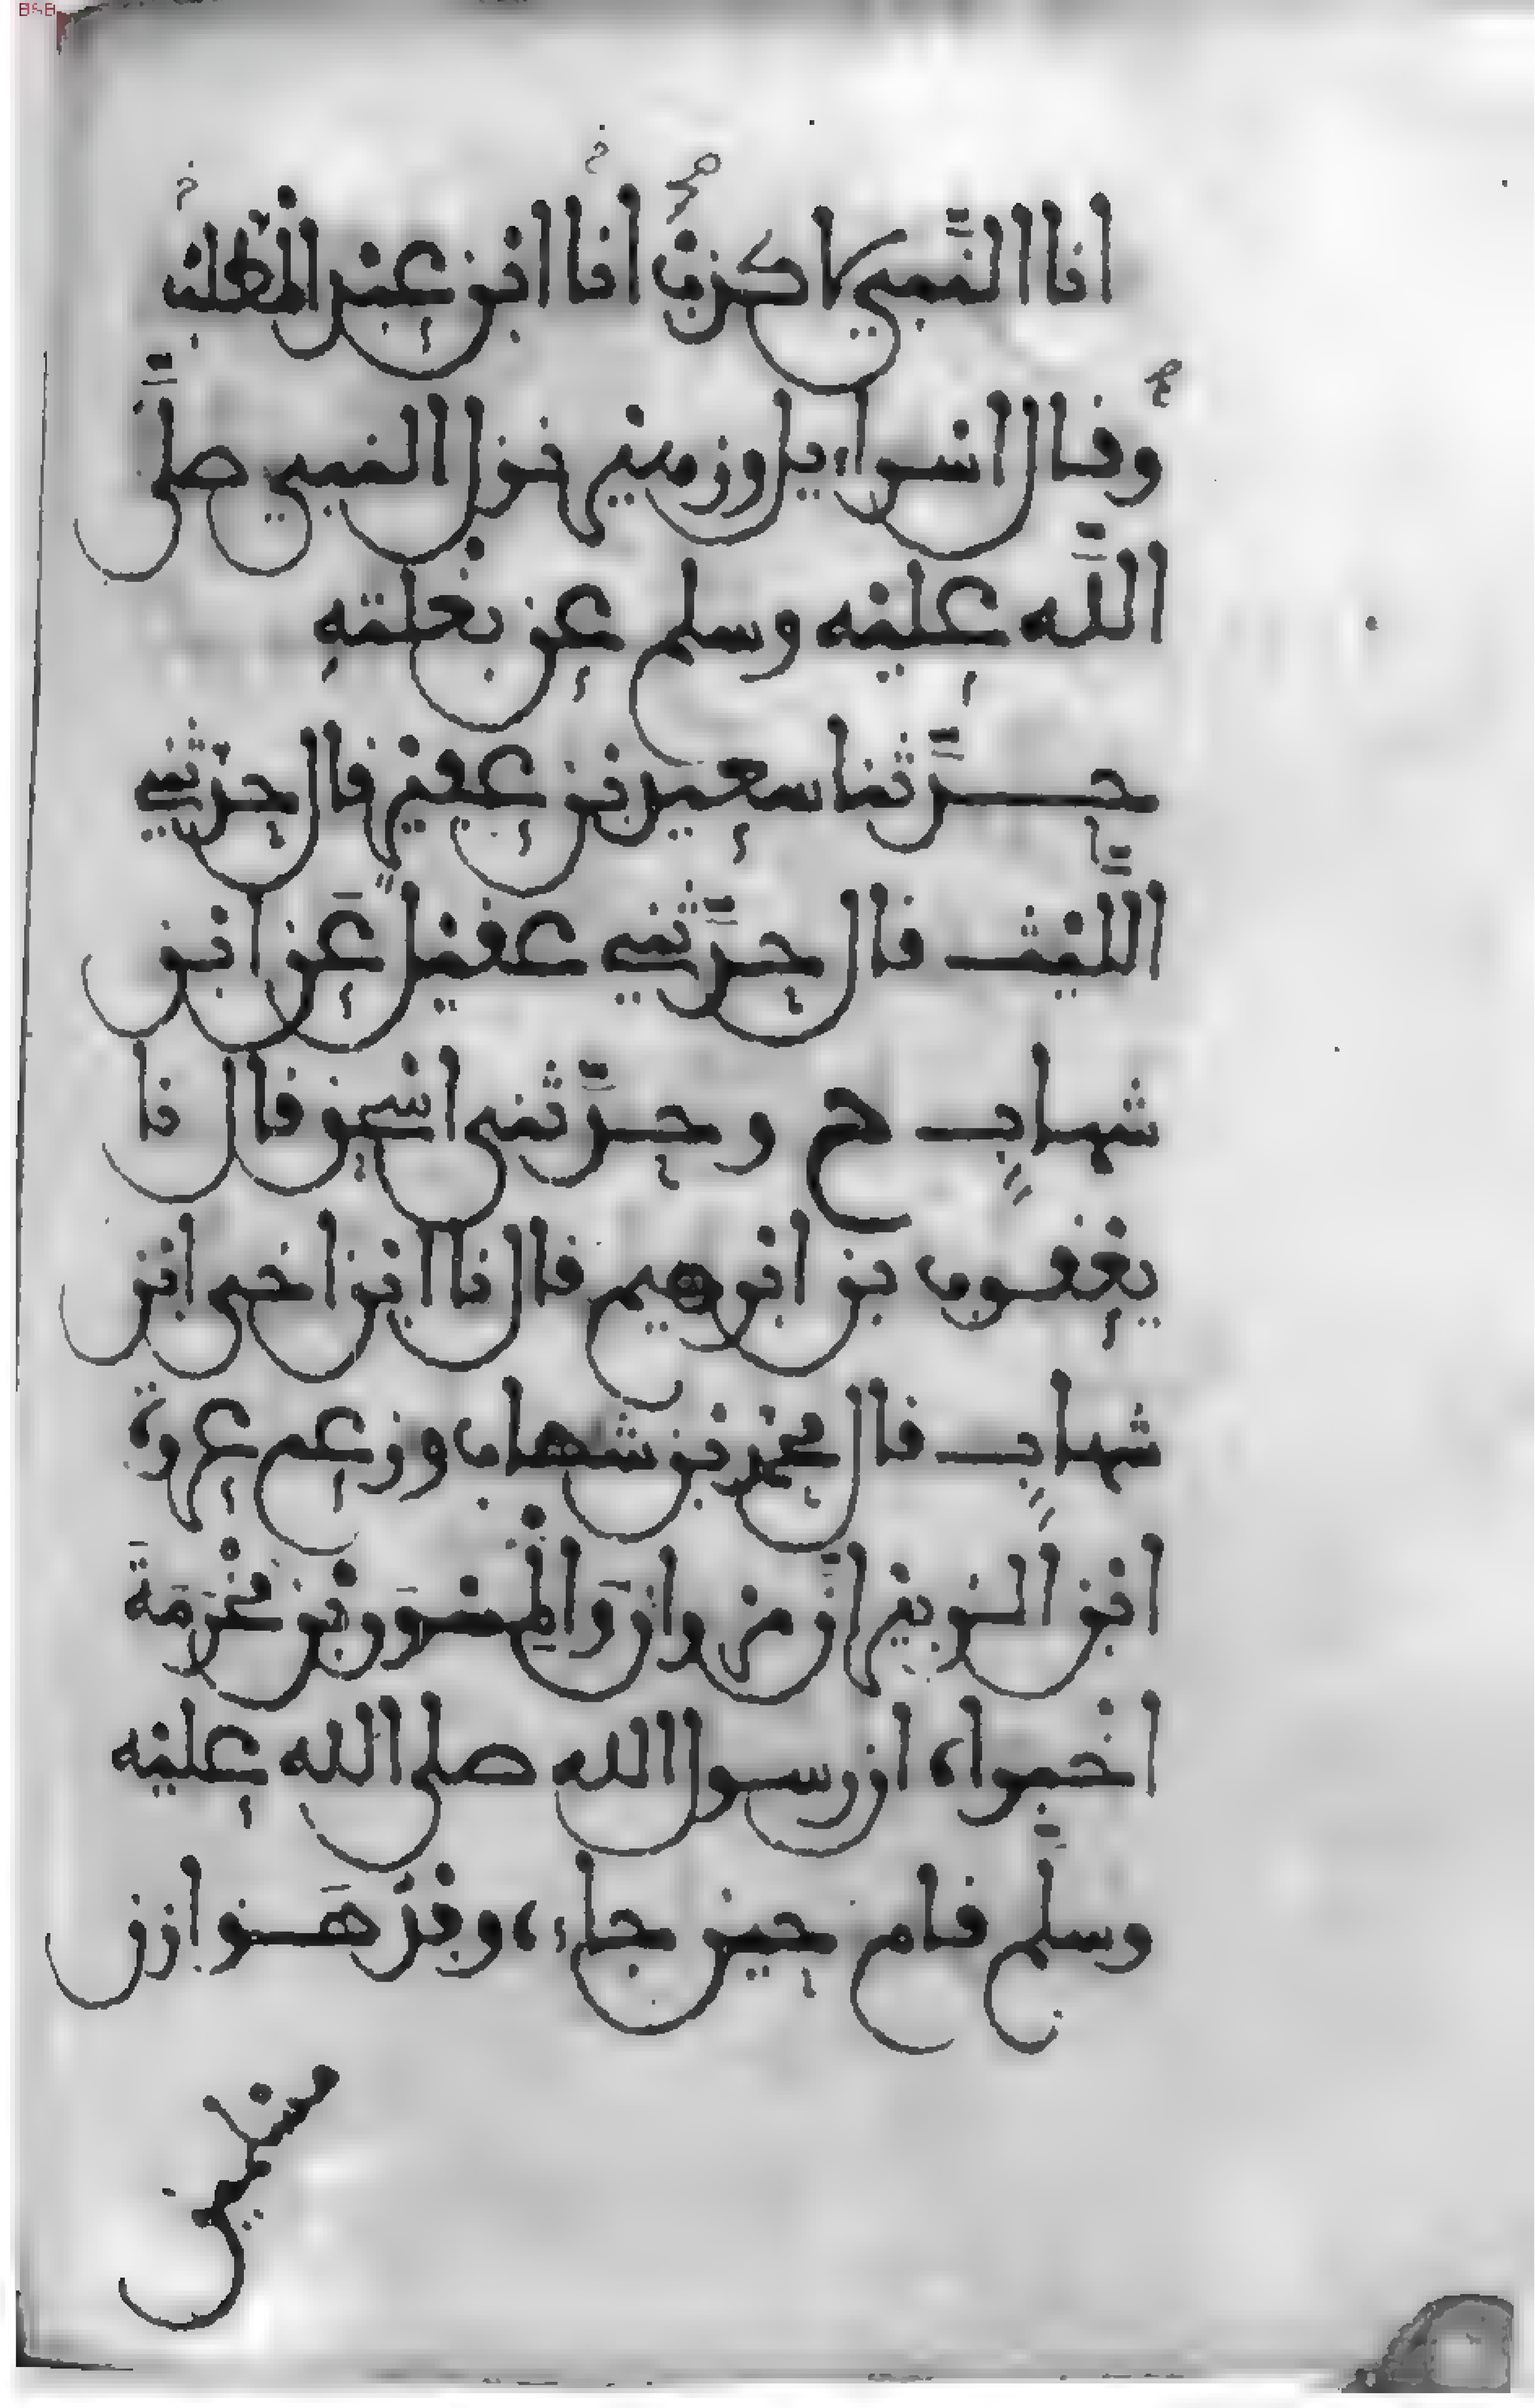 انا النَّبي لا كذب انا ابن عبد المطلب
وقال اسراءيل وزهير نزل النبي صلَّى
اللَّه عليه وسلم عن بغلته
حدَّثنا سعيد بن عفير قال حدثني
اللَّيث قال حدَّثني عقيل عَن ابن
شهابٍ ح وحدَّثني اسحق قال نا
يعقوب بن ابرهيم قال نا ابن اخي ابن
شهابٍ قال محمد بن شهاب وزعم عروة
ابن الزبير انَّ مروان وَالمِسْوَر بْن مَخْرَمَةَ
اخبراه ان رسول الله صلى الله عليه
وسلَّم قام حين جاءه وفد هَوازن
مسلمين